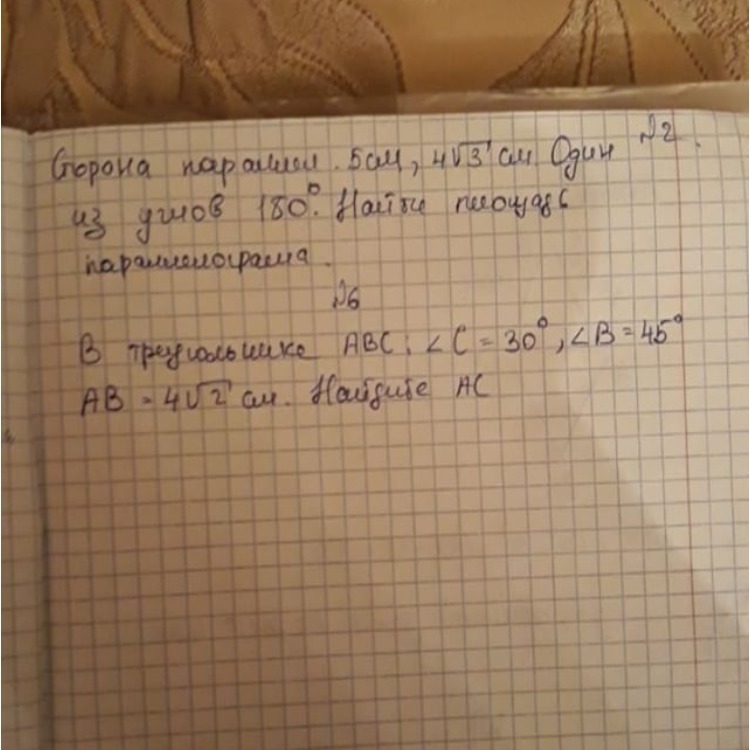 Сторона паралел. 5см, 4√3 см Один №2.
из углов 150°. Найти площадь
параллелограма.
№6
В треугольнике ABC: ∠C = 30°, ∠B = 45°
AB = 4√2 см. Найдите AC